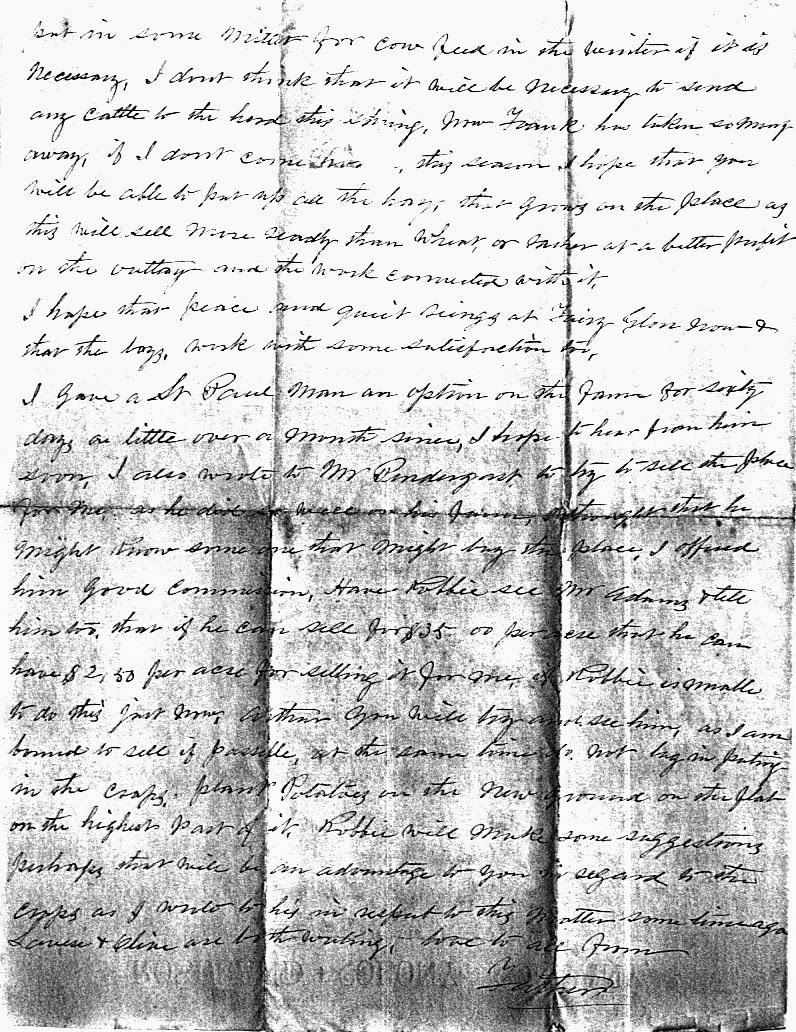 put in some Millet for cow feed in the winter if it is
Necessary, I dont think that it will be Necessary to send
any cattle to the herd this spring, Now Frank has taken so many
away, if I dont come this season I hope that you
will be able to put up all the hay, that grows on the place as
this will sell more readly than Wheat, or rather at a better profit
on the outlay and the work connected with it,
I hope that peace and quiet reings at Fairy Glen now &
that the boys, work with some satisfaction to,
I Gave a St Paul Man an option on the farm for sixty
days a little over a month since, I hope to hear from him
soon, I also wrote to Mr Pendergast to try to sell the place
for me, as he did so well on his farm, thought that he
Might Know some one that might buy the place, I offered
him Good Commission, Have Robbie see Mr Adams & tell
him too, that if he can sell for $35.00 per acre that he can
have $2,50 per acre for selling it for me, if Robbie is unable
to do this just now, Arthur you will try and see him, as I am
bound to sell if possible, at the same time do not lag in puting
in the crops. plant Potatoes on the New ground on the flat
on the highest part of it Robbie will make some suggestions
perhaps that will be an advantage to you in regard to the
crops as I wrote to his in respect to this matter some time ago
& Cline are both writing, love to all from
Father